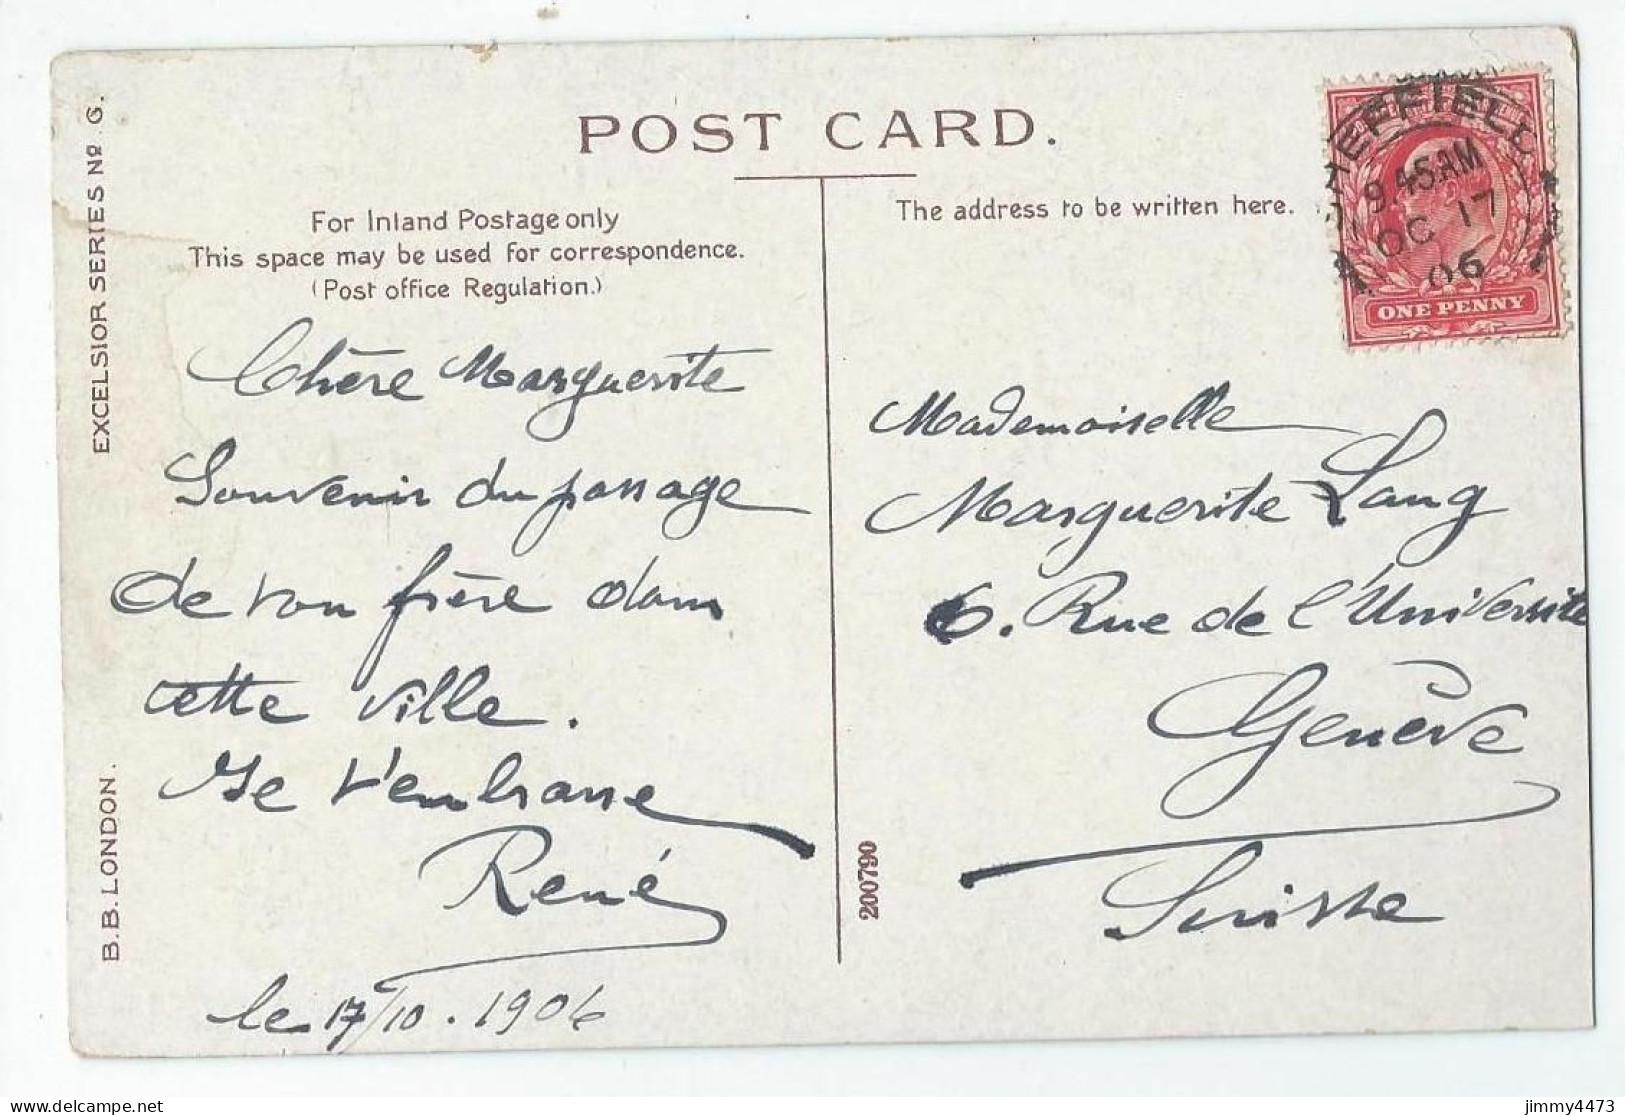 POST CARD.
For Inland Postage only
This space may be used for correspondence.
(Post office Regulation.)
The address to be written here.
EXCELSIOR SERIES No. G.
B.B. LONDON.
200790
SHEFFIELD
9.45AM
OC 17
06
ONE PENNY
Chère Marguerite
Souvenir du passage
de ton frère dans
cette ville.
Je t'embrasse
René
le 17/10. 1906
Mademoiselle
Marguerite Lang
6. Rue de l'Université
Genève
Suisse
delcampe.net
jimmy4473